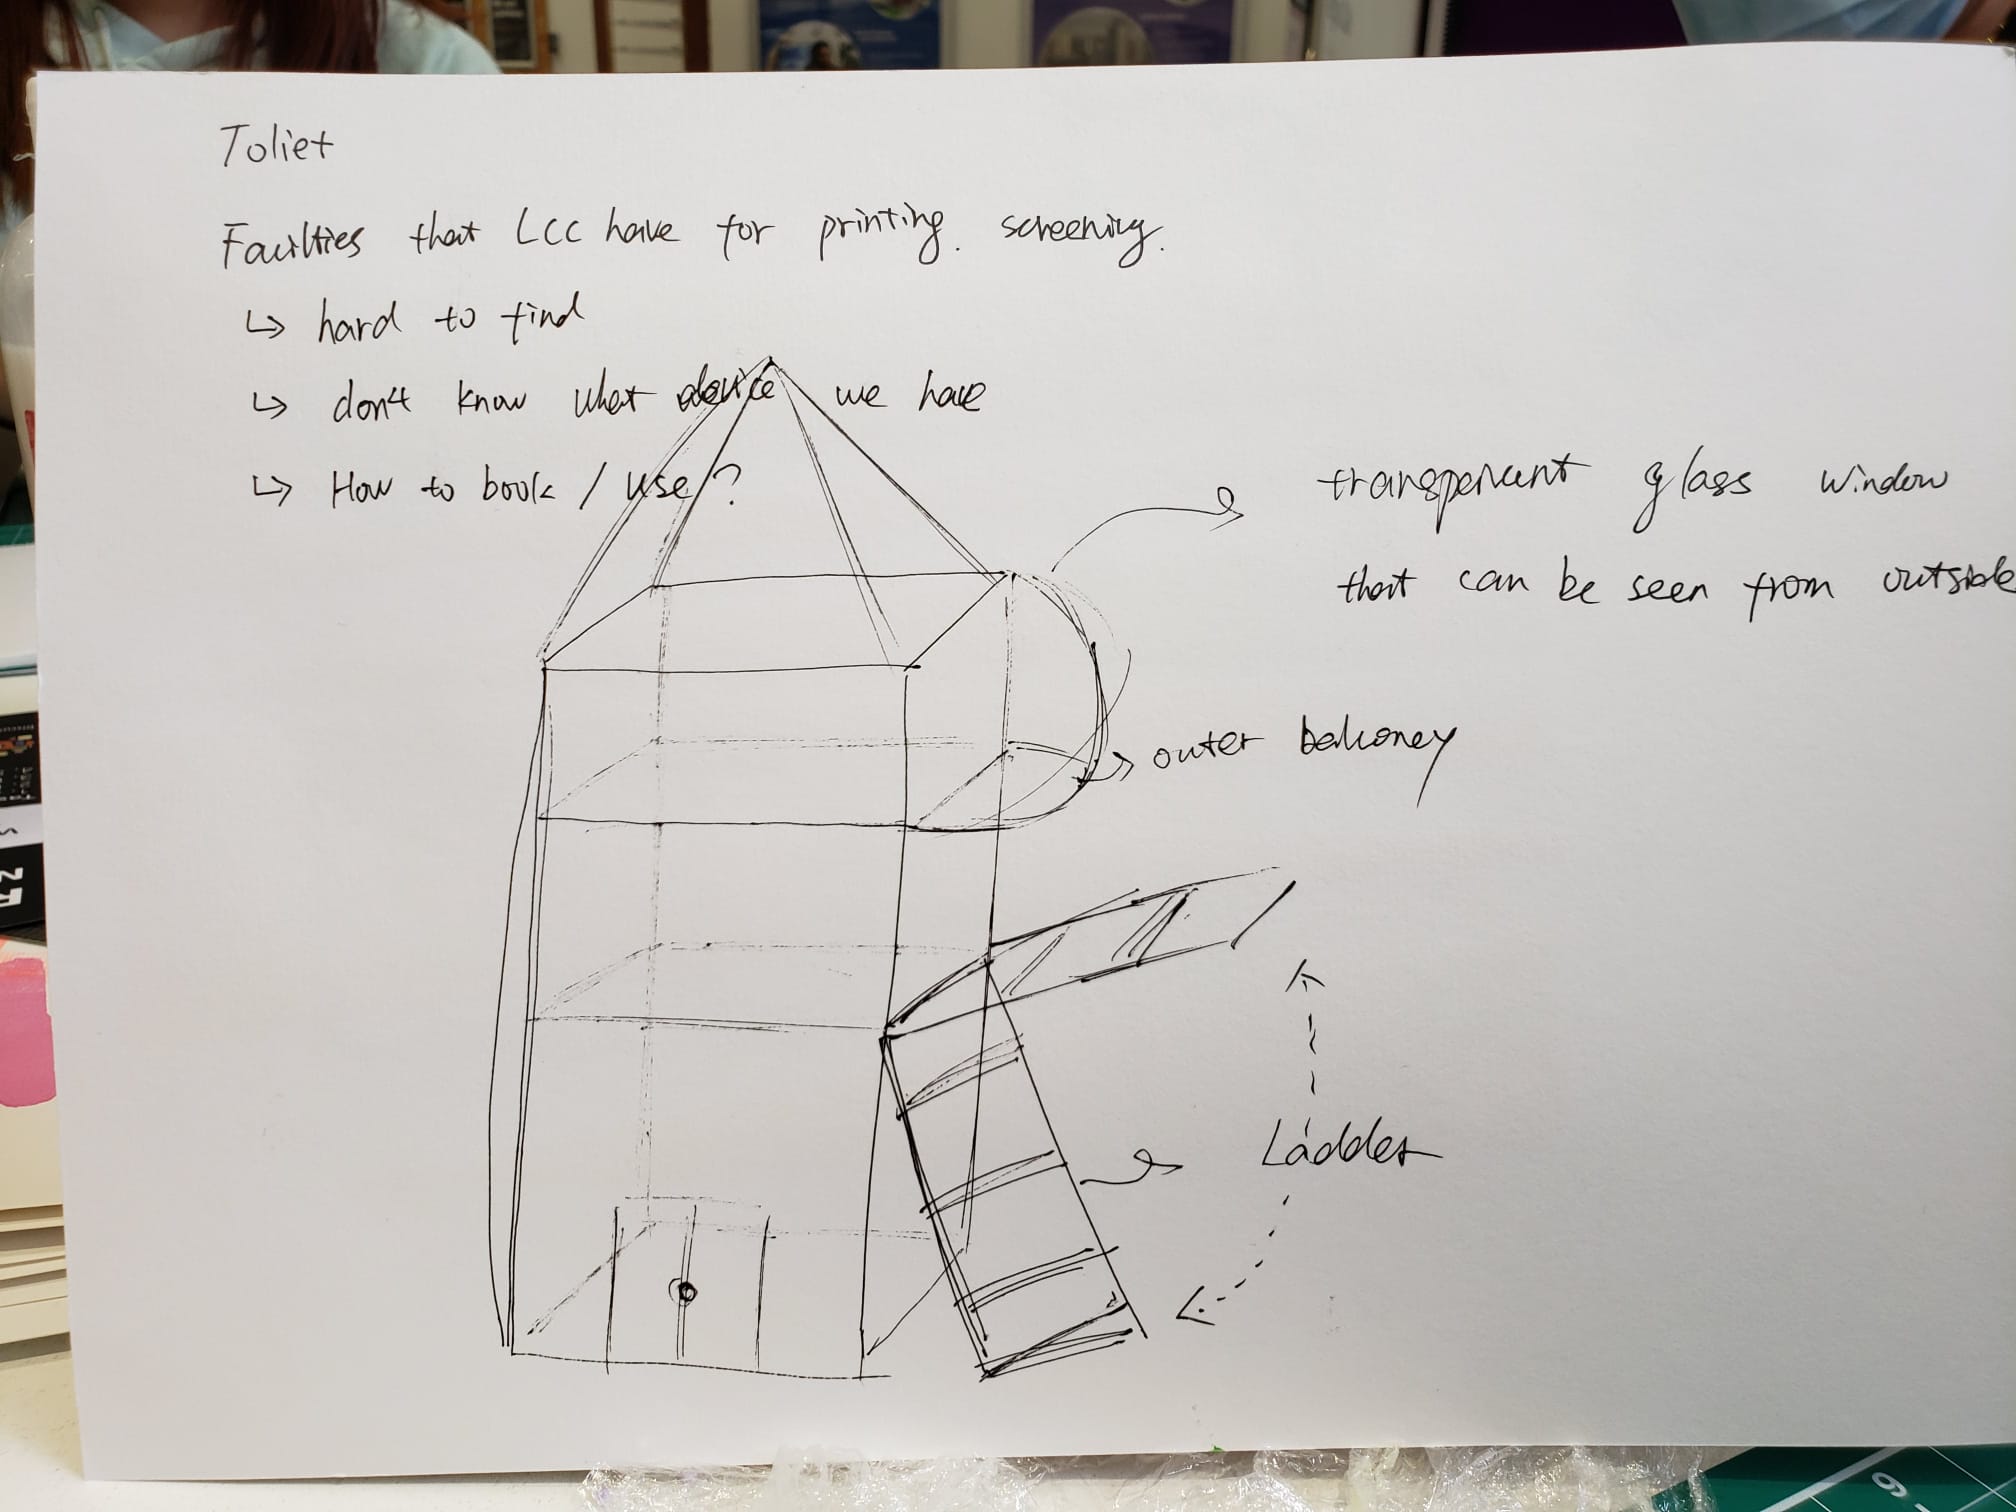 Toliet
Facilties that LCC have for printing. screening.
↳ hard to find
↳ don't know what device we have
↳ How to book / use ?
transperent glass window
that can be seen from outside
outer balconey
Ladder